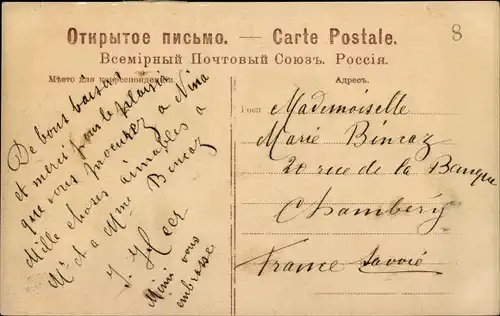 8
Открытое письмо. — Carte Postale.
Всемірный Почтовый Союзъ. Россія.
Мѣсто для корреспонденціи.
Адресъ.
De bons baisers
et merci pour le plaisir
que vous procurez a Nina
Mille choses aimables a
Mr et a Mme Bincaz
Mimi vous
embrasse
Mademoiselle
Marie Bincaz
20 rue de la Banque
Chambéry
France Savoie